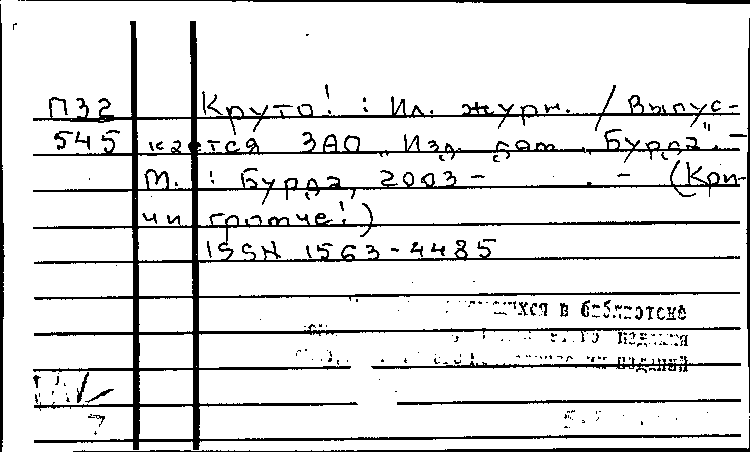 П32 Круто! : Ил. журн. / Выпус-
545 кается ЗАО „Изд. дом „Бурда". –
М. : Бурда, 2003 – . – (Кри-
чи громче!)
ISSN 1563-4485
в библиотеке
издания
изданий
7